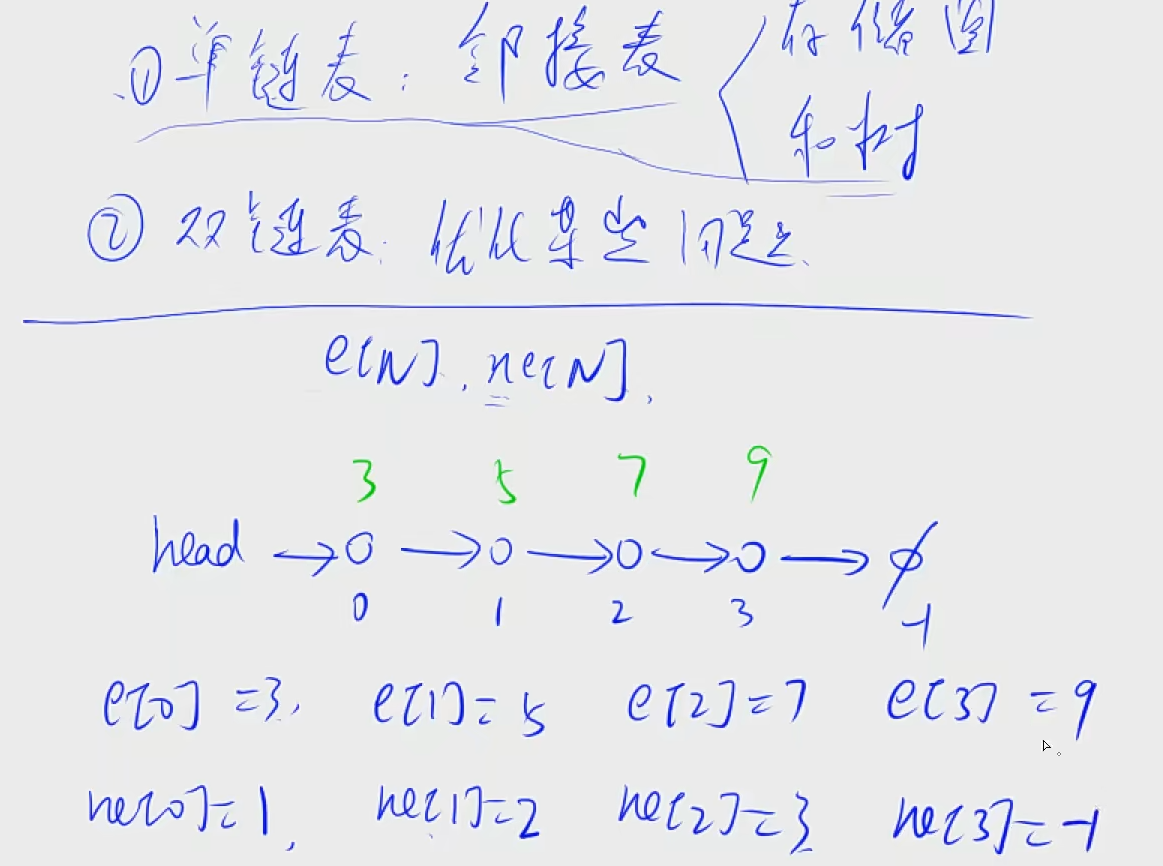 ① 单链表：邻接表 存储图
和树
② 双链表：优化某些问题.
e[N], ne[N],
3 5 7 9
head → O → O → O → O → ∅
0 1 2 3 -1
e[0] =3, e[1]= 5 e[2]=7 e[3] =9
ne[0]=1, ne[1]=2 ne[2]=3 ne[3]=-1